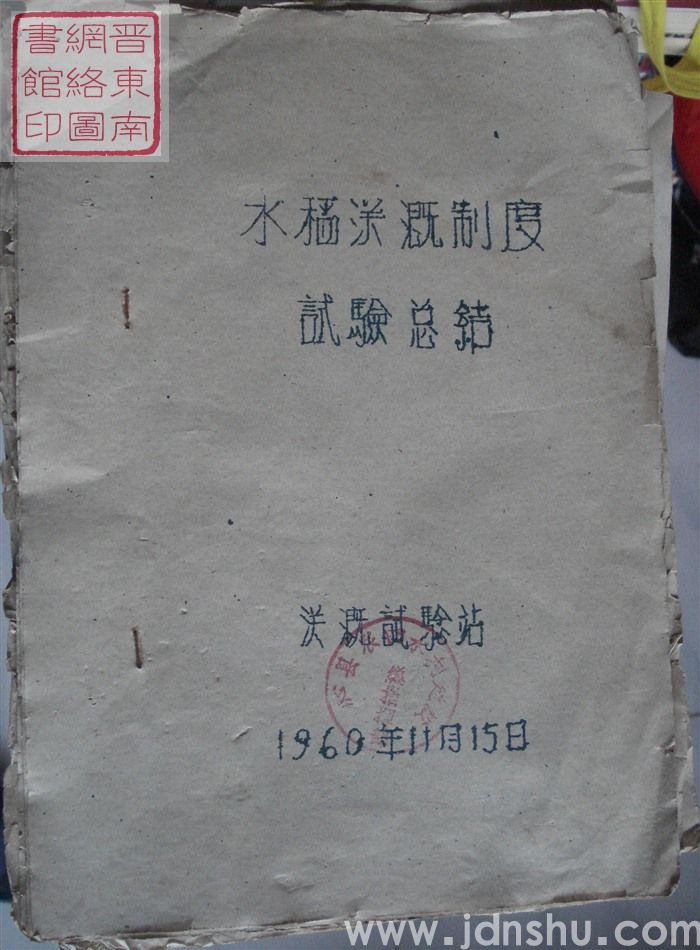 晋東南
網絡圖
書館印
水稻浂溉制度
試驗总結
浂溉試驗站
1960年11月15日
www.jdnshu.com